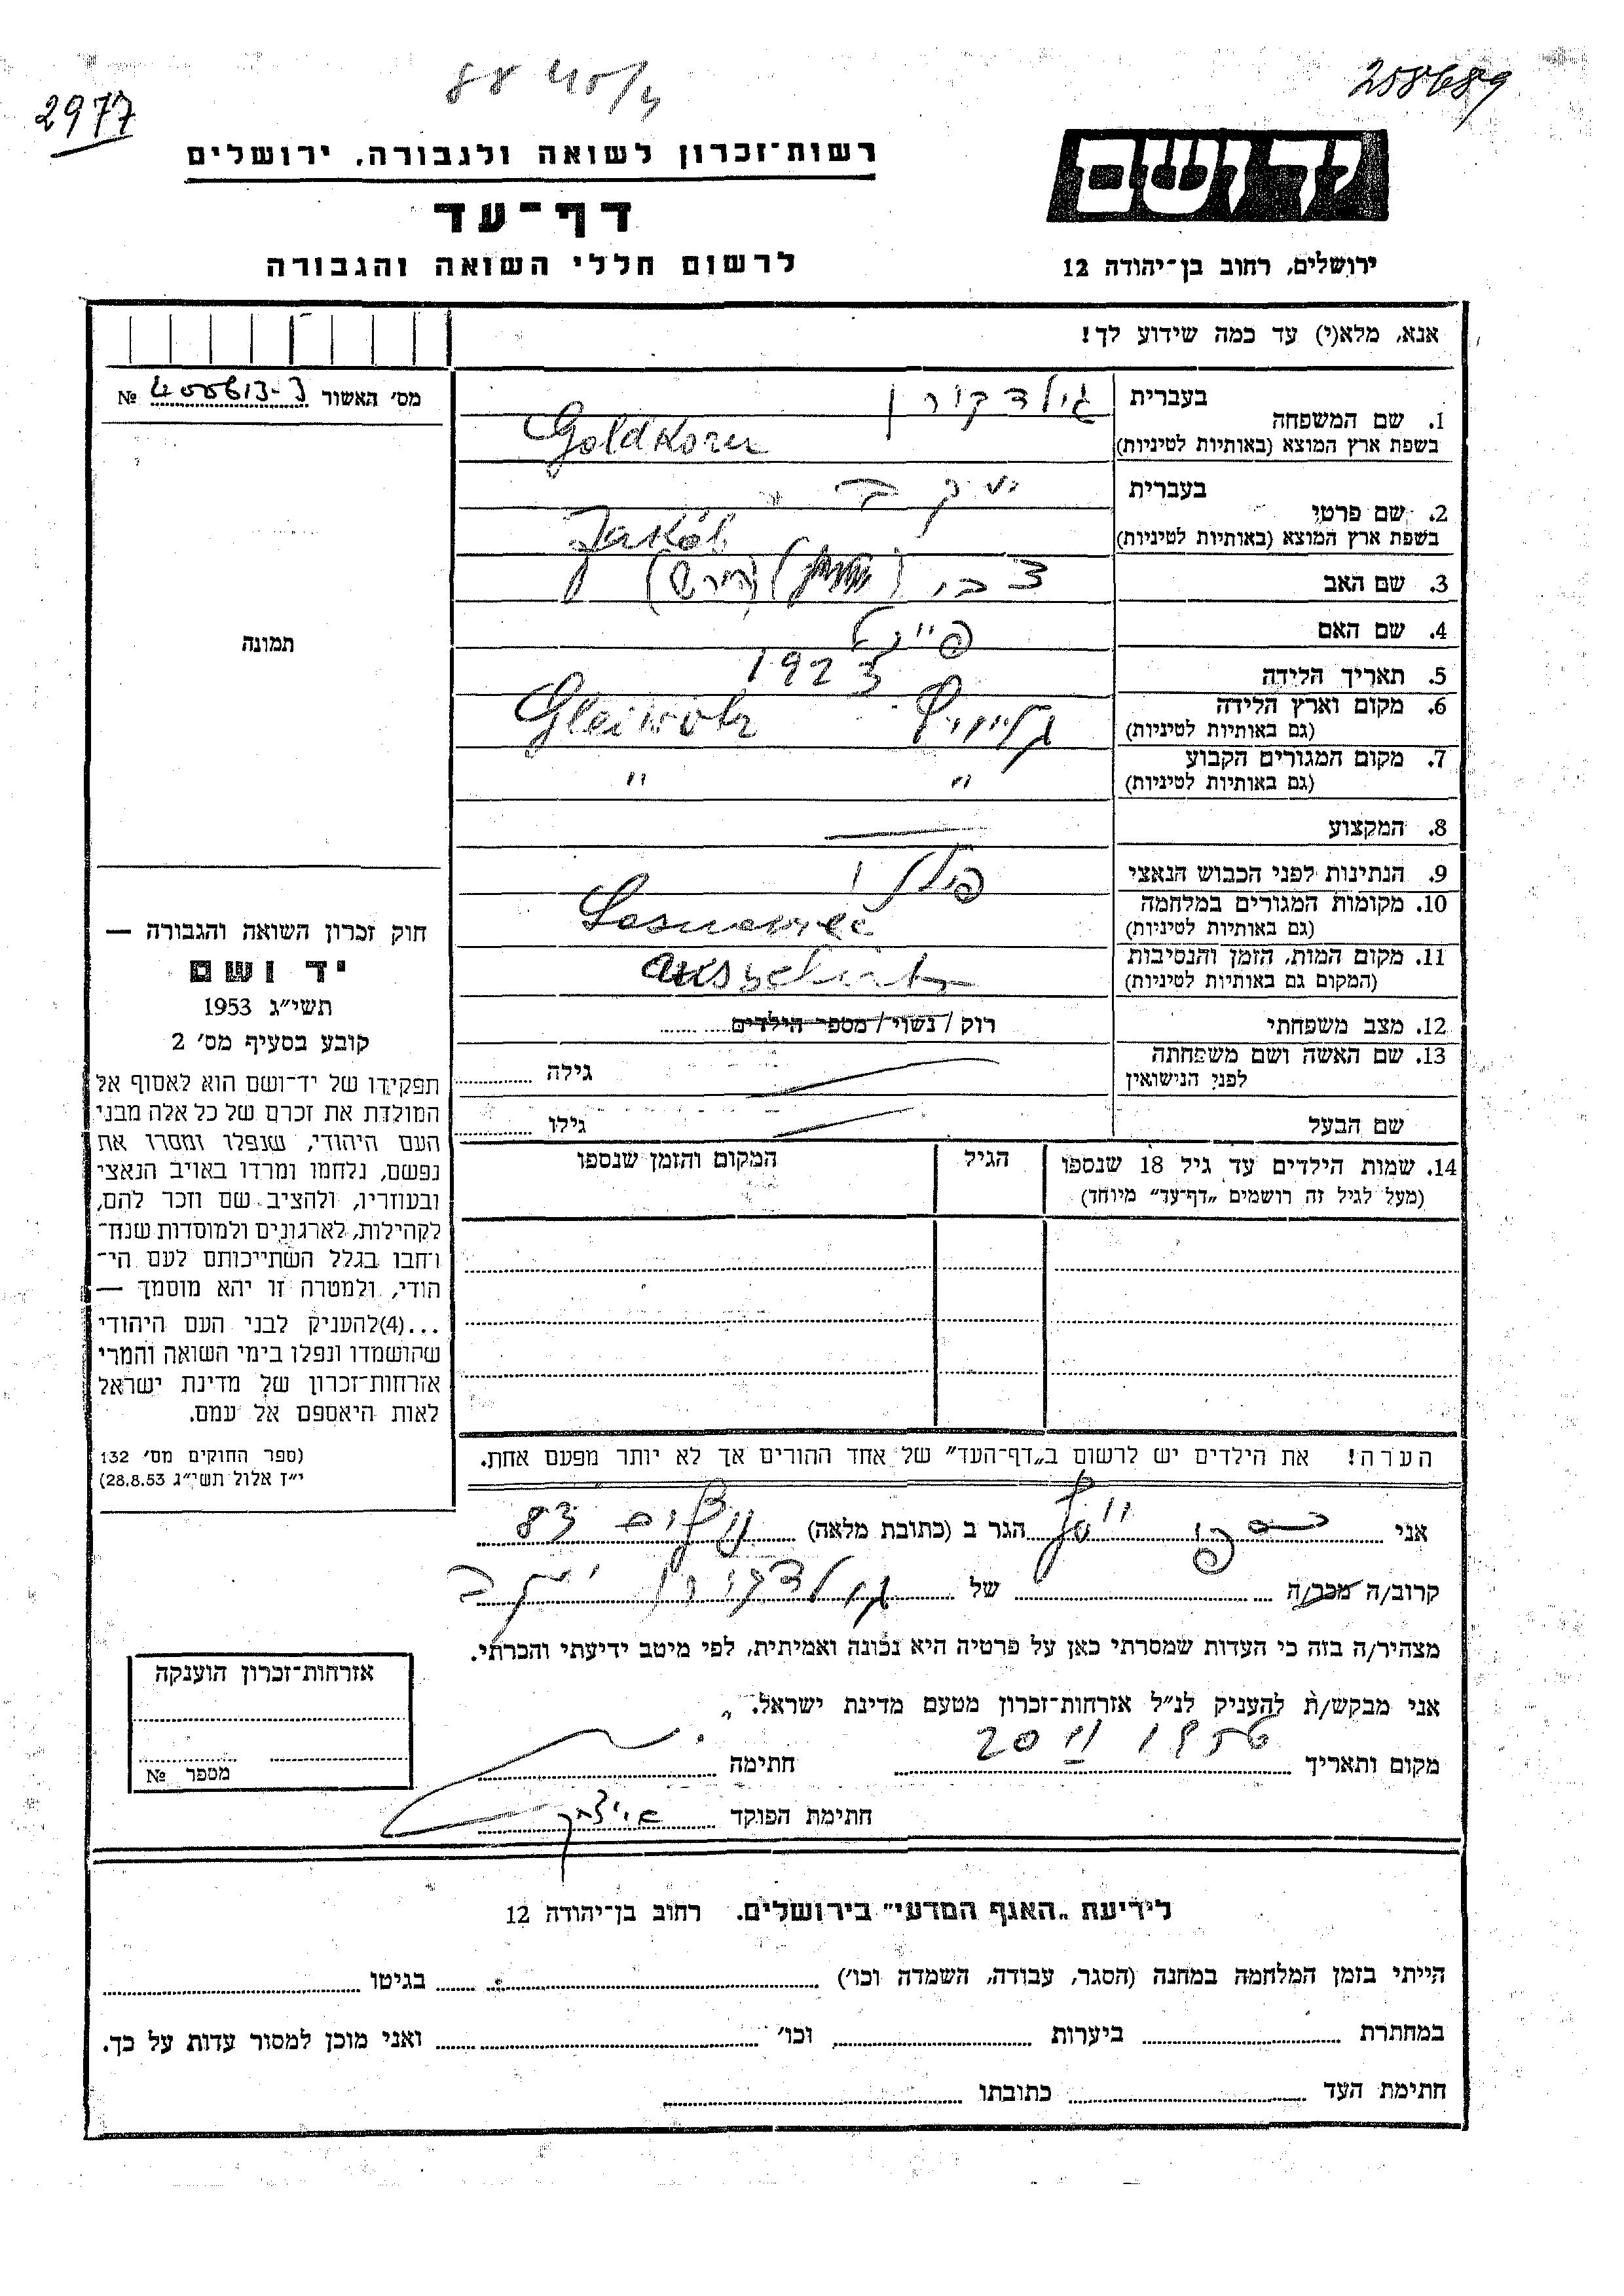 2977
208689
רשות־זכרון לשואה ולגבורה, ירושלים
דף־עד
לרשום חללי השואה והגבורה
יד ושם
ירושלים, רחוב בן־יהודה 12
אנא, מלא(י) עד כמה שידוע לך!
מס׳ האשור №
1. שם המשפחה
בעברית גולדקורן
בשפת ארץ המוצא (באותיות לטיניות) Goldkorn
2. שם פרטי
בעברית יעקב
בשפת ארץ המוצא (באותיות לטיניות) Jakób
3. שם האב צבי (הירש)
4. שם האם
5. תאריך הלידה 1923
6. מקום וארץ הלידה
(גם באותיות לטיניות) גלייוויץ Gleiwotz
7. מקום המגורים הקבוע
(גם באותיות לטיניות) " "
8. המקצוע
9. הנתינות לפני הכבוש הנאצי פולני
10. מקומות המגורים במלחמה
(גם באותיות לטיניות) Sosnowiec
11. מקום המות, הזמן והנסיבות
(המקום גם באותיות לטיניות) Auschwitz
12. מצב משפחתי רוק / נשוי / מספר הילדים
13. שם האשה ושם משפחתה
לפני הנישואין גילה
שם הבעל גילו
14. שמות הילדים עד גיל 18 שנספו
(מעל לגיל זה רושמים „דף־עד” מיוחד)
הגיל
המקום והזמן שנספו
תמונה
חוק זכרון השואה והגבורה —
יד ושם
תשי״ג 1953
קובע בסעיף מס׳ 2
תפקידו של יד־ושם הוא לאסוף אל
המולדת את זכרם של כל אלה מבני
העם היהודי, שנפלו ומסרו את
נפשם, נלחמו ומרדו באויב הנאצי
ובעוזריו, ולהציב שם וזכר להם,
לקהילות, לארגונים ולמוסדות שנח־
רבו בגלל השתייכותם לעם הי־
הודי, ולמטרה זו יהא מוסמך —
...(4)להעניק לבני העם היהודי
שהושמדו ונפלו בימי השואה והמרי
אזרחות־זכרון של מדינת ישראל
לאות היאספם אל עמם.
(ספר החוקים מס׳ 132
י״ז אלול תשי״ג 28.8.53)
הערה! את הילדים יש לרשום ב„דף־העד” של אחד ההורים אך לא יותר מפעם אחת.
אני הגר ב (כתובת מלאה) 83
קרוב/ה מכר/ה של גולדקורן יעקב
מצהיר/ה בזה כי העדות שמסרתי כאן על פרטיה היא נכונה ואמיתית, לפי מיטב ידיעתי והכרתי.
אני מבקש/ת להעניק לנ״ל אזרחות־זכרון מטעם מדינת ישראל.
מקום ותאריך 20 II 1956 חתימה
חתימת הפוקד
אזרחות־זכרון הוענקה
מספר №
לידיעת „האגף המדעי” בירושלים. רחוב בן־יהודה 12
הייתי בזמן המלחמה במחנה (הסגר, עבודה, השמדה וכו׳) בגיטו
במחתרת ביערות וכו׳ ואני מוכן למסור עדות על כך.
חתימת העד כתובתו